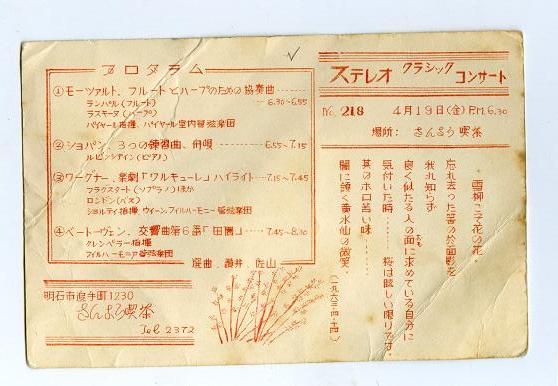 プログラム
①モーツァルト、フルートとハープのための協奏曲 6.30〜6.55
ランパル（フルート）
ラスキーヌ（ハープ）
パイヤール指揮、パイヤール室内管弦楽団
②ショパン、3つの練習曲、舟唄 6.55〜7.15
ルビンシュタイン（ピアノ）
③ワーグナー、楽劇「ワルキューレ」ハイライト 7.15〜7.45
フラグスタート（ソプラノ）ほか
ロンドン（バス）
ショルティ指揮 ウィーンフィルハーモニー管弦楽団
④ベートーヴェン、交響曲第6番「田園」 7.45〜8.30
クレンペラー指揮
フィルハーモニア管弦楽団
選曲、讃井、佐山
明石市鷹匠町1230
さんよう喫茶
Tel 2372
ステレオ クラシック コンサート
No. 218 4月19日(金)P.M.6.30
場所: さんよう喫茶
・雪柳って子花の花・
忘れ去った筈の於面影を
我れ知らず
良く似たる人の面に求めている自分に
気付いた時…… 桜は眩しい限りです。
其のホロ苦い味……
闇に鋭く黄水仙の微笑、